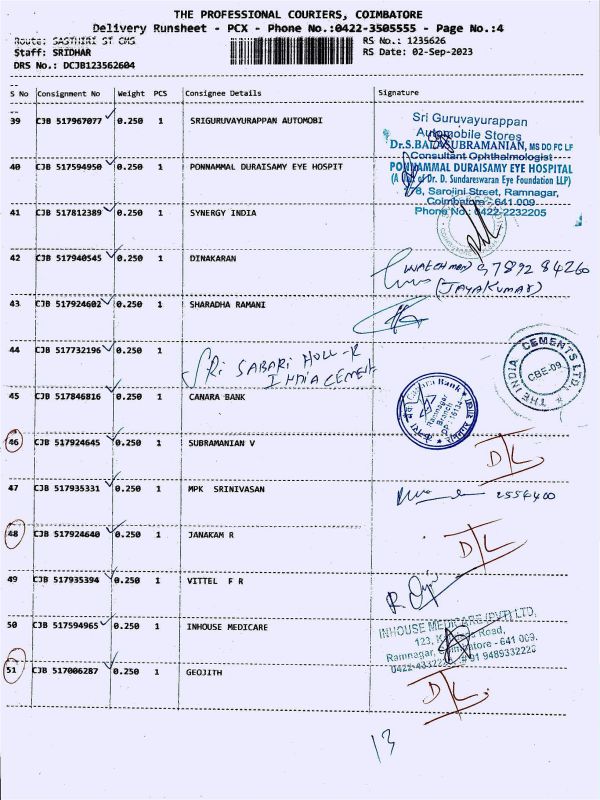 THE PROFESSIONAL COURIERS, COIMBATORE
Delivery Runsheet - PCX - Phone No.:0422-3505555 - Page No.:4
Route: SASTHIRI ST CMS RS No.: 1235626
Staff: SRIDHAR RS Date: 02-Sep-2023
DRS No.: DCJB123562604
S No Consignment No Weight PCS Consignee Details Signature
39 CJB 517967077 0.250 1 SRIGURUVAYURAPPAN AUTOMOBI
Sri Guruvayurappan
Automobile Stores
Dr.S.BALASUBRAMANIAN, MS DO FC LF
Consultant Ophthalmologist
40 CJB 517594950 0.250 1 PONNAMMAL DURAISAMY EYE HOSPIT
PONNAMMAL DURAISAMY EYE HOSPITAL
(A of Dr. D. Sundareswaran Eye Foundation LLP)
78, Sarojini Street, Ramnagar,
Coimbatore - 641 009.
Phone No.: 0422-2232205
41 CJB 517812389 0.250 1 SYNERGY INDIA
42 CJB 517940545 0.250 1 DINAKARAN
WATCHman 9789284260
(JAYAKUMAR)
43 CJB 517924602 0.250 1 SHARADHA RAMANI
44 CJB 517732196 0.250 1
SRi SABARI HOLL-R
INDIA CEMENT
THE INDIA CEMENTS LTD.
CBE-09.
45 CJB 517846816 0.250 1 CANARA BANK
Canara Bank
Ramnagar
Branch
DP: 16134
46 CJB 517924645 0.250 1 SUBRAMANIAN V
D/L
47 CJB 517935331 0.250 1 MPK SRINIVASAN
2554400
48 CJB 517924640 0.250 1 JANAKAM R
D/L
49 CJB 517935394 0.250 1 VITTEL F R
50 CJB 517594965 0.250 1 INHOUSE MEDICARE
INHOUSE MEDICARE (PVT) LTD,
123, Road,
Ramnagar, Coimbatore - 641 009.
51 CJB 517006287 0.250 1 GEOJITH
D/L
13